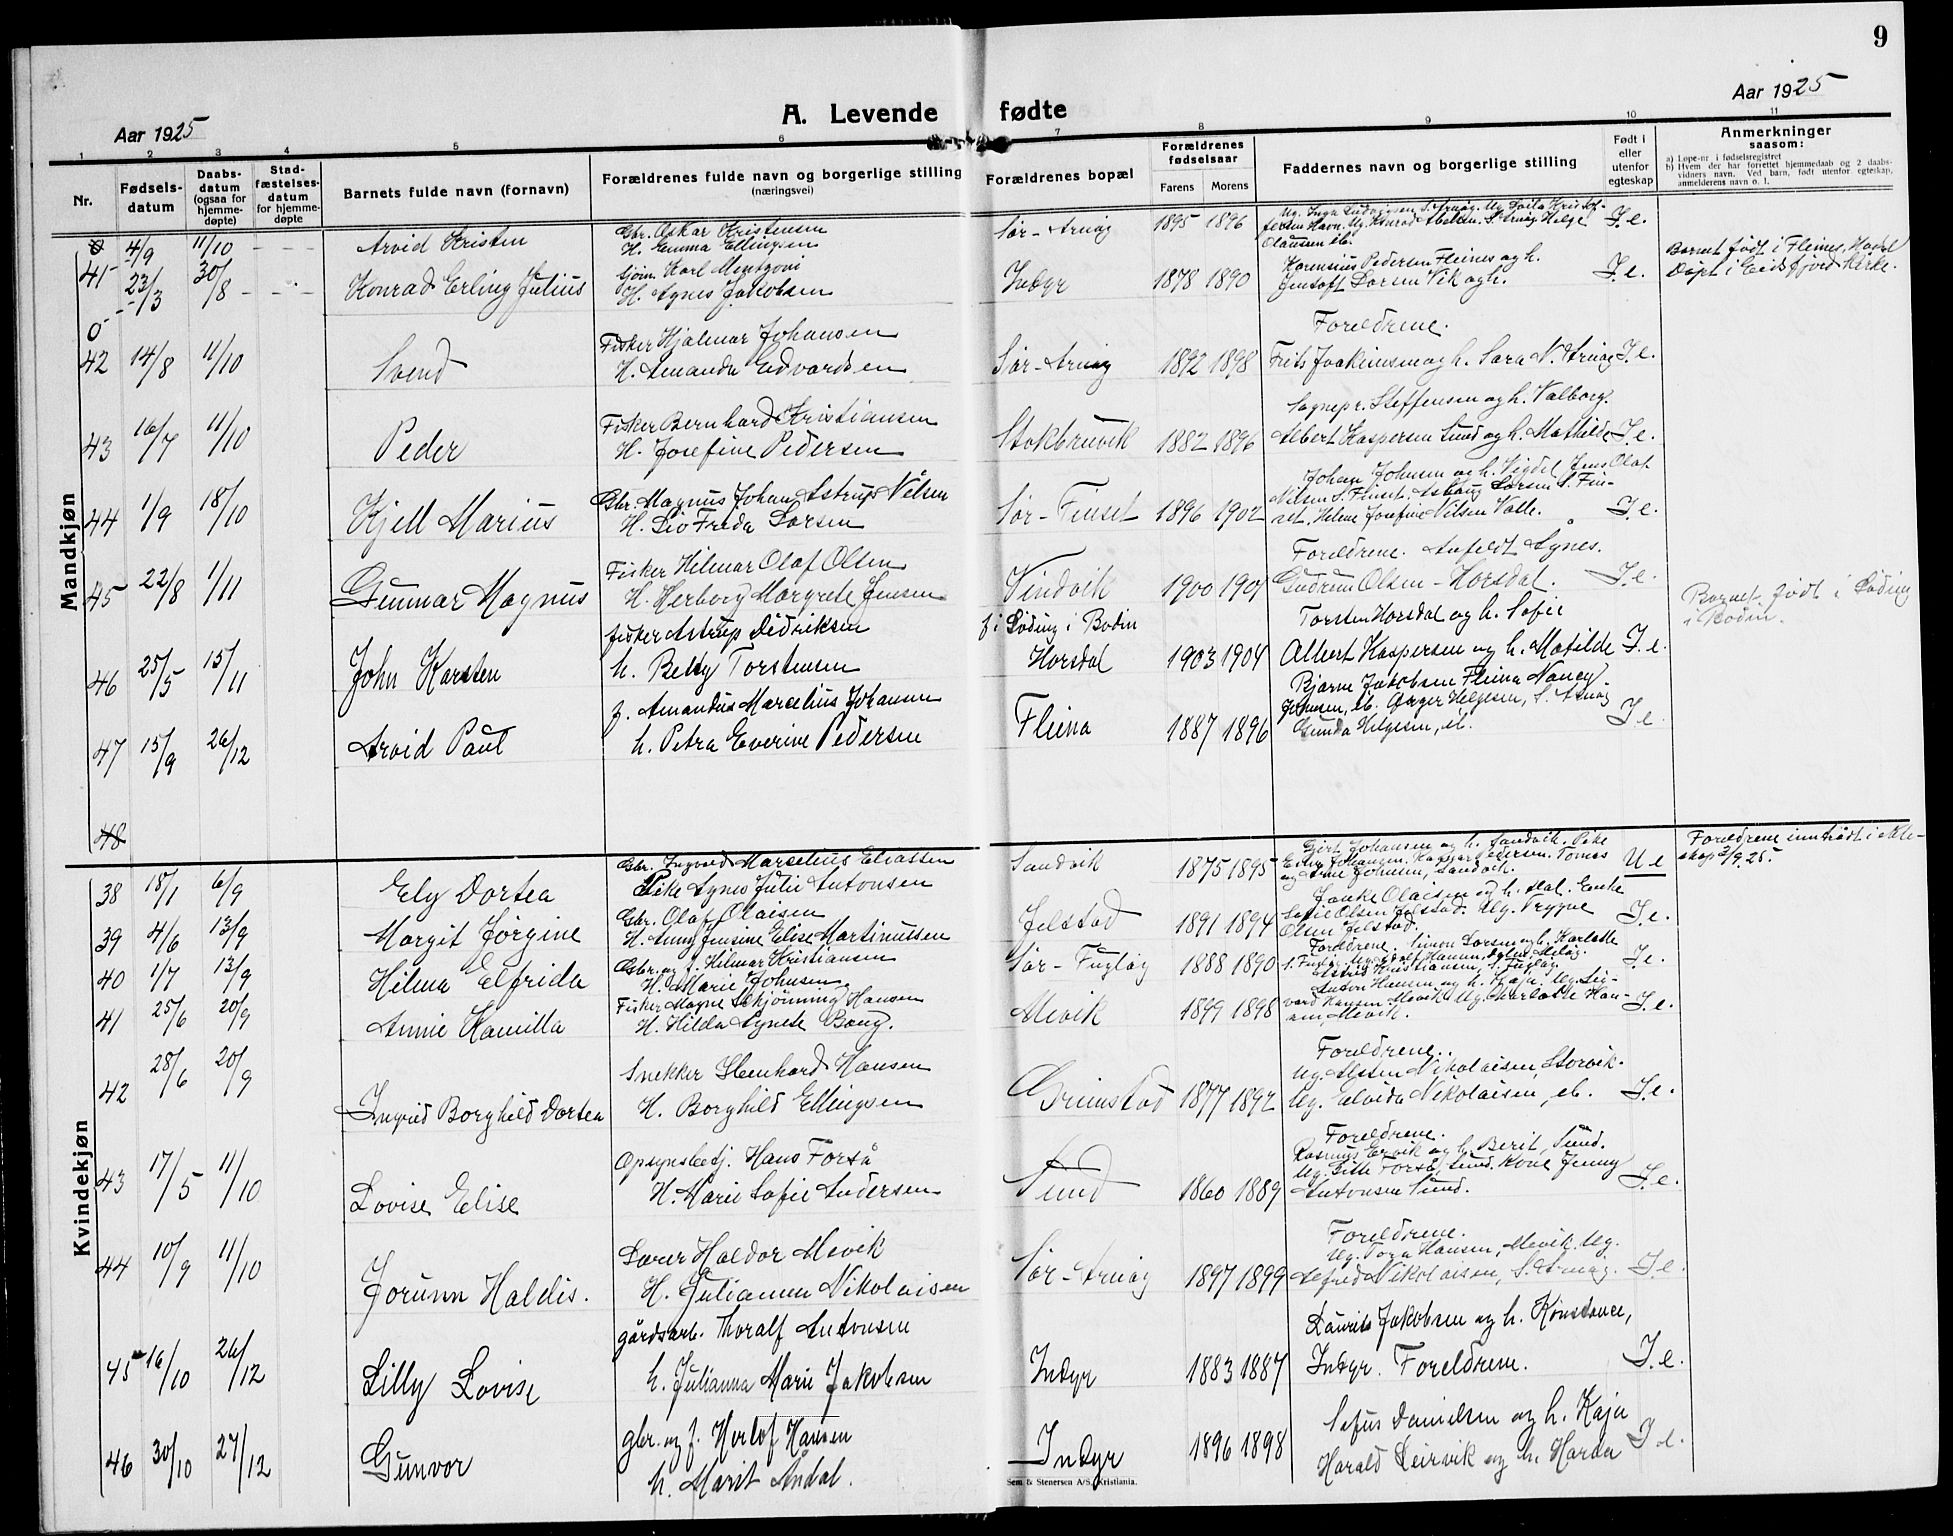 9
Aar 1925
A. Levende fødte
Aar 1925
1 2 3 4 5 6 7 8 9 10 11
Nr.
Fødsels-
datum
Daabs-
datum
(ogsaa for
hjemme-
døpte)
Stad-
fæstelses-
datum
for hjemme-
døpte
Barnets fulde navn (fornavn)
Forældrenes fulde navn og borgerlige stilling
(næringsvei)
Forældrenes bopæl
Forældrenes
fødselsaar
Farens Morens
Faddernes navn og borgerlige stilling
Født i
eller
utenfor
egteskap
Anmerkninger
saasom:
a) Løpe-nr i fødselsregistret
b) Hvem der har forrettet hjemmedaab og 2 daabs-
vidners navn. Ved barn, født utenfor egteskap,
anmelderens navn o. l.
Mandkjøn
0 4/9 11/10 - - - Arvid Kristen
Gbr. Oskar Kristensen
H. Emma Ellingsen
Sør-Arnøy 1895 1896
I. e.
41 23/3 30/8 - - - Konrad Erling Julius
Karl
H. Agnes Jakobsen
Indyr 1878 1890
Karensius Pedersen Fleines og h.
Jentoft Larsen Vik og h.
I. e.
Barnet født i Fleines, Hadsel
Døpt i Eidsfjord kirke.
0
42 14/8 11/10 Svend
Fisker Hjalmar Johansen
H. Amanda Edvardsen
Sør-Arnøy 1892 1898
Foreldrene.
Frits Joakimsen og h. Sara N. Arnøy
I. e.
43 16/7 11/10 Peder
Fisker Bernhard Kristiansen
H. Josefine Pedersen
Stokbruvik 1882 1896
Sognepr. Steffensen og h. Valborg.
Albert Kaspersen Sund og h. Mathilde
I. e.
44 1/9 18/10 Kjell Marius
Gbr. Magnus Johan Astrup Nilsen
H. Liv Freda Larsen
Sør-Finset 1896 1902
Johan Johnsen og h. Vigdel Jens Olaf
Nilsen S. Finset. Aslaug Larsen S. Fin-
set. Helene Josefine Nilsen Valle.
I. e.
45 22/8 1/11 Gunnar Magnus
Fisker Hilmar Olaf Olsen
H. Herborg Margrete Jensen
Vindvik 1900 1901
Foreldrene. Anfeldt Agnes.
Gudrun Olsen - Horsdal.
I. e.
46 25/5 15/11 John Karsten
fisker Astrup Didriksen
h. Betty Torstensen
f i Løding i Bodin
Horsdal 1903 1904
Torsten Horsdal og h. Sofie
Albert Kaspersen og h. Matilde
I. e.
Barnet født i Løding
i Bodin.
47 15/9 26/12 Arvid Paul
f. Amandus Marcelius Johansen
h. Petra Everine Pedersen
Fleina 1887 1896
Bjarne Jakobsen Fleina Nancy
Johnsen, ib. Asger Helgesen, S. Arnøy
Gunda Helgesen, ib.
I. e.
48
Kvindekjøn
38 18/1 6/9 Ely Dortea
Gbr. Ingvard Marselius Eliassen
Pike Agnes Julie Antonsen
Sandvik 1875 1895
Johansen og h. Sandvik. Pike
og Arne Johnsen, Sandvik.
U e
Foreldrene inntrådt i ekte-
skap 2/9 25.
39 4/6 13/9 Margit Jørgine
Gbr. Olaf Olaisen
H. Anny Jensine Elise Martinussen
Jelstad 1891 1894
Olaisen og h. Enke
Sofie Olsen Jelstad. Ug. Trygve
Olsen Jelstad.
I. e.
40 1/7 13/9 Hilma Elfrida
Gbr. og f. Hilmar Kristiansen
H. Marie Johnsen
Sør-Fugløy 1888 1890
Foreldrene. Simon Larsen og h. Karlotte
Astrid Kristiansen, S. Fugløy.
I. e.
41 25/6 20/9 Annie Kamilla
Fisker Magne Skjønning Hansen
H. Hilda Agnete Bang.
Mevik 1899 1898
Anton Hansen og h. Kaja. Ug. Sig-
vard Hansen Mevik. Ug. Charlotte Han-
sen, Mevik.
I. e.
42 28/6 20/9 Ingrid Borghild Dortea
Snekker Stenhard Hansen
H. Borghild Ellingsen
Grimstad 1877 1892
Foreldrene.
Ug. Alsten Nikolaisen, Storvik.
Ug. Elvida Nikolaisen, ib.
I. e.
43 17/5 11/10 Lovise Elise
Opsynsbetj. Hans Forså
H. Marie Sofie Andersen
Sund 1860 1889
Foreldrene.
Rasmus Ervik og h. Berit, Sund.
Ug. Gitte Forså, Sund. Kone Jenny
Antonsen Sund.
I. e.
44 10/9 11/10 Jorunn Haldis.
Lærer Haldor Mevik
H. Julianne Nikolaisen
Sør-Arnøy 1897 1899
Foreldrene.
Ug. Tora Hansen, Mevik. Ug.
Alfred Nikolaisen, S. Arnøy.
I. e.
45 16/10 26/12 Lilly Lovise
gårdsarb. Thoralf Antonsen
h. Julianna Marie Jakobsen
Indyr 1883 1887
Laurits Jakobsen og h. Konstance,
Indyr. Foreldrene.
I. e.
46 30/10 27/12 Gunvor
gbr. og f. Herlof Hansen
h. Marit Åndal.
Indyr 1896 1898
Sofus Danielsen og h. Kaja
Harald Leirvik og h. Harda
I. e.
Sem & Stenersen A/S, Kristiania.